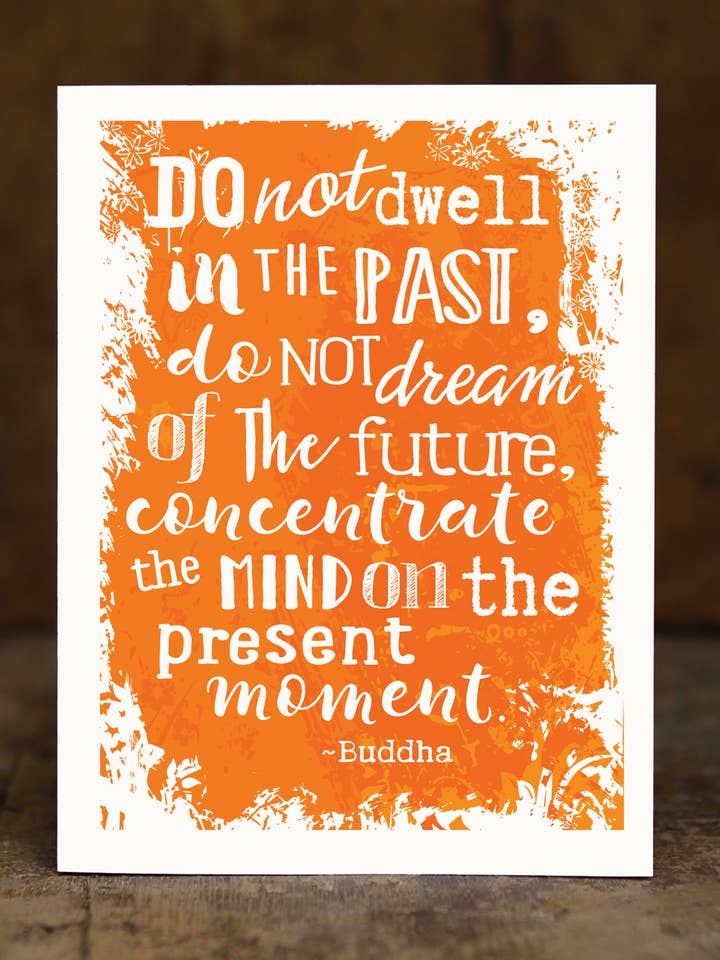 DO not dwell
in THE PAST,
do NOT dream
of The future,
concentrate
the MIND on the
present
moment.
~Buddha